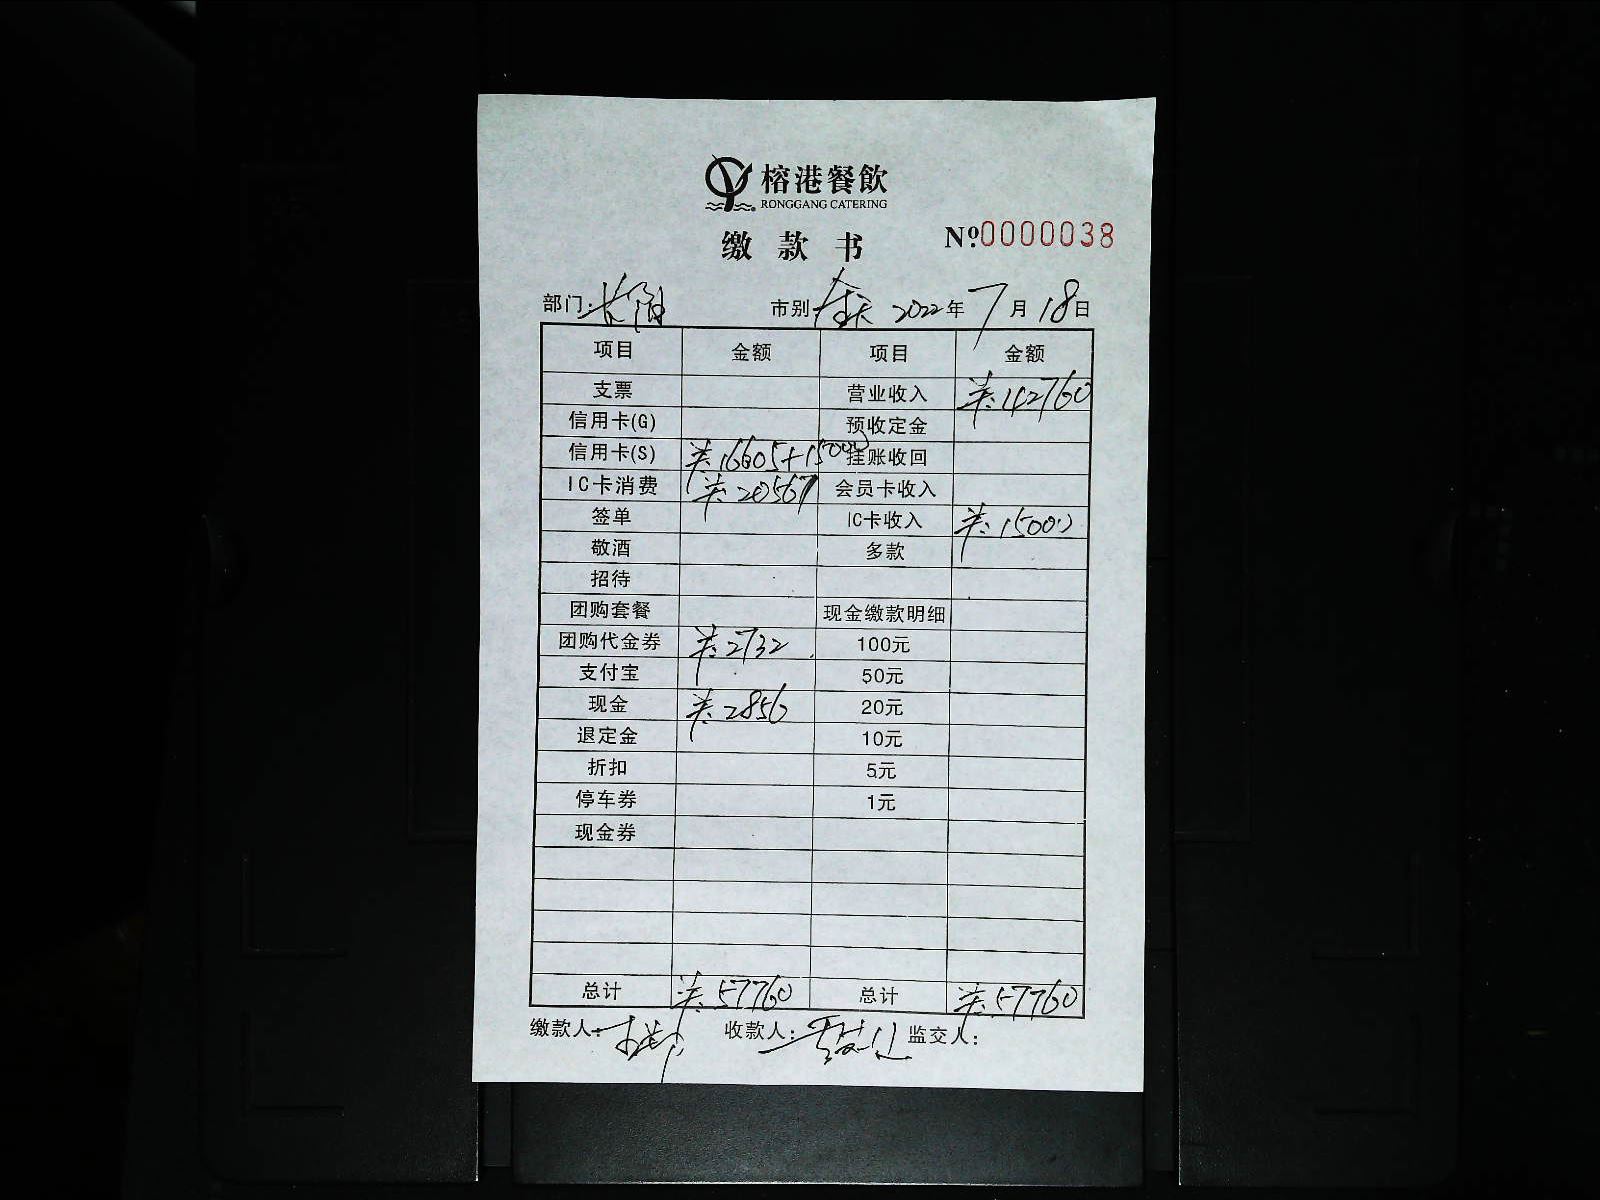 榕港餐飲
RONGGANG CATERING
缴款书
№0000038
部门: 市别 全天 2022年7月18日
项目 金额 项目 金额
支票 营业收入 ¥:42760
信用卡(G) 预收定金
信用卡(S) ¥:16605+15000 挂账收回
IC卡消费 ¥:20567 会员卡收入
签单 IC卡收入 ¥:15000
敬酒 多款
招待
团购套餐 现金缴款明细
团购代金券 ¥:2732 100元
支付宝 50元
现金 ¥:2856 20元
退定金 10元
折扣 5元
停车券 1元
现金券
总计 ¥:57760 总计 ¥:57760
缴款人: 收款人: 监交人: